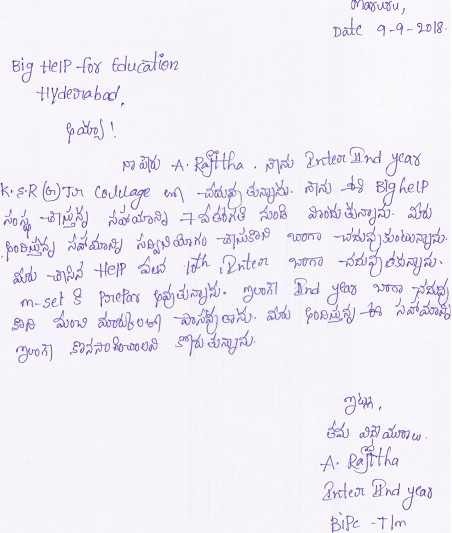 Maruru,
Date 9-9-2018.
Big Help for Education
Hyderabad.
అయ్యా!
నా పేరు A. Rajitha. నేను Inter IInd year
K.G.R (G) Jr Collage లో చదువుతున్నాను. నేను ఈ Big help
సంస్థ చేస్తున్న సహాయాన్ని 7వ తరగతి నుండి పొందుతున్నాను. మీరు
అందిస్తున్న సహాయాన్ని సద్వినియోగం చేసుకొని బాగా చదువుకుంటున్నాను.
మీరు చేసిన Help వలన 10th, Inter బాగా చదువుతున్నాను.
m-set కి prefar అవుతున్నాను. ఇలాగే IInd year బాగా చదువు
కొని మంచి మార్కులతో పాసవుతాను. మీరు అందిస్తున్న ఈ సహాయాన్ని
ఇలాగే కొనసాగించాలని కోరుతున్నాను.
ఇట్లు,
తమ విధేయురాలు.
A. Rajitha
Inter IInd year
BiPc - T/m